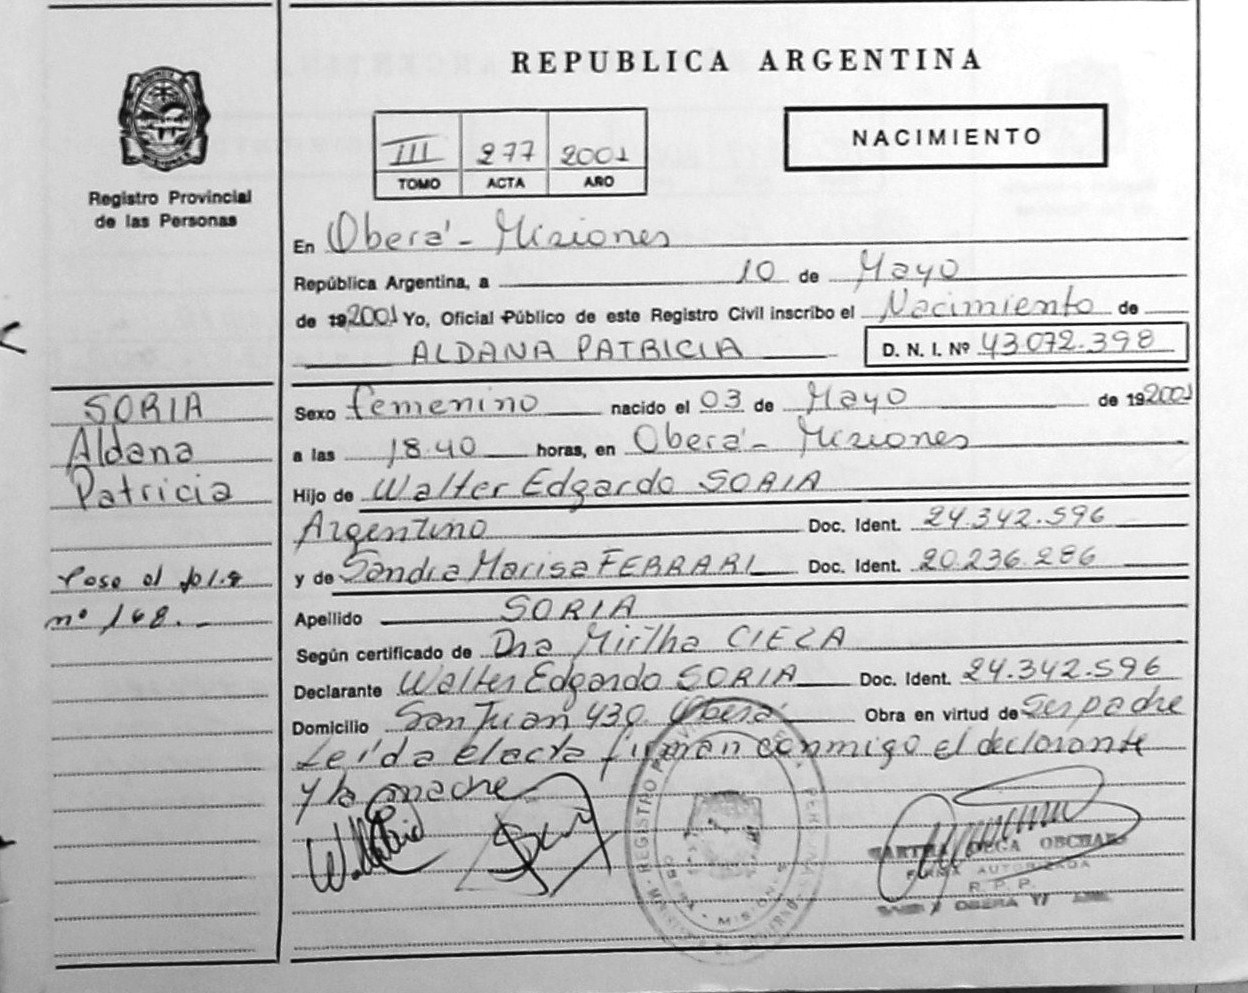 REPUBLICA ARGENTINA
Registro Provincial
de las Personas
III 277 2001
TOMO ACTA AÑO
NACIMIENTO
En Oberá - Misiones
República Argentina, a 10 de Mayo
de 192001 Yo, Oficial Público de este Registro Civil inscribo el Nacimiento de
ALDANA PATRICIA D. N. I. Nº 43072.398
SORIA
Aldana
Patricia
Pase al folio
nº 168.-
Sexo femenino nacido el 03 de Mayo de 192001
a las 18.40 horas, en Oberá - Misiones
Hijo de Walter Edgardo SORIA
Argentino Doc. Ident. 24.342.596
y de Sandra Marisa FERRARI Doc. Ident. 20.236.286
Apellido SORIA
Según certificado de Dra Mirtha CIEZA
Declarante Walter Edgardo SORIA Doc. Ident. 24.342.596
Domicilio San Juan 430 Oberá Obra en virtud de Ser padre
Leída el acta firman conmigo el declarante
y la madre
MARTHA OLGA
FIRMA AUTORIZADA
R. P. P.
OBERA